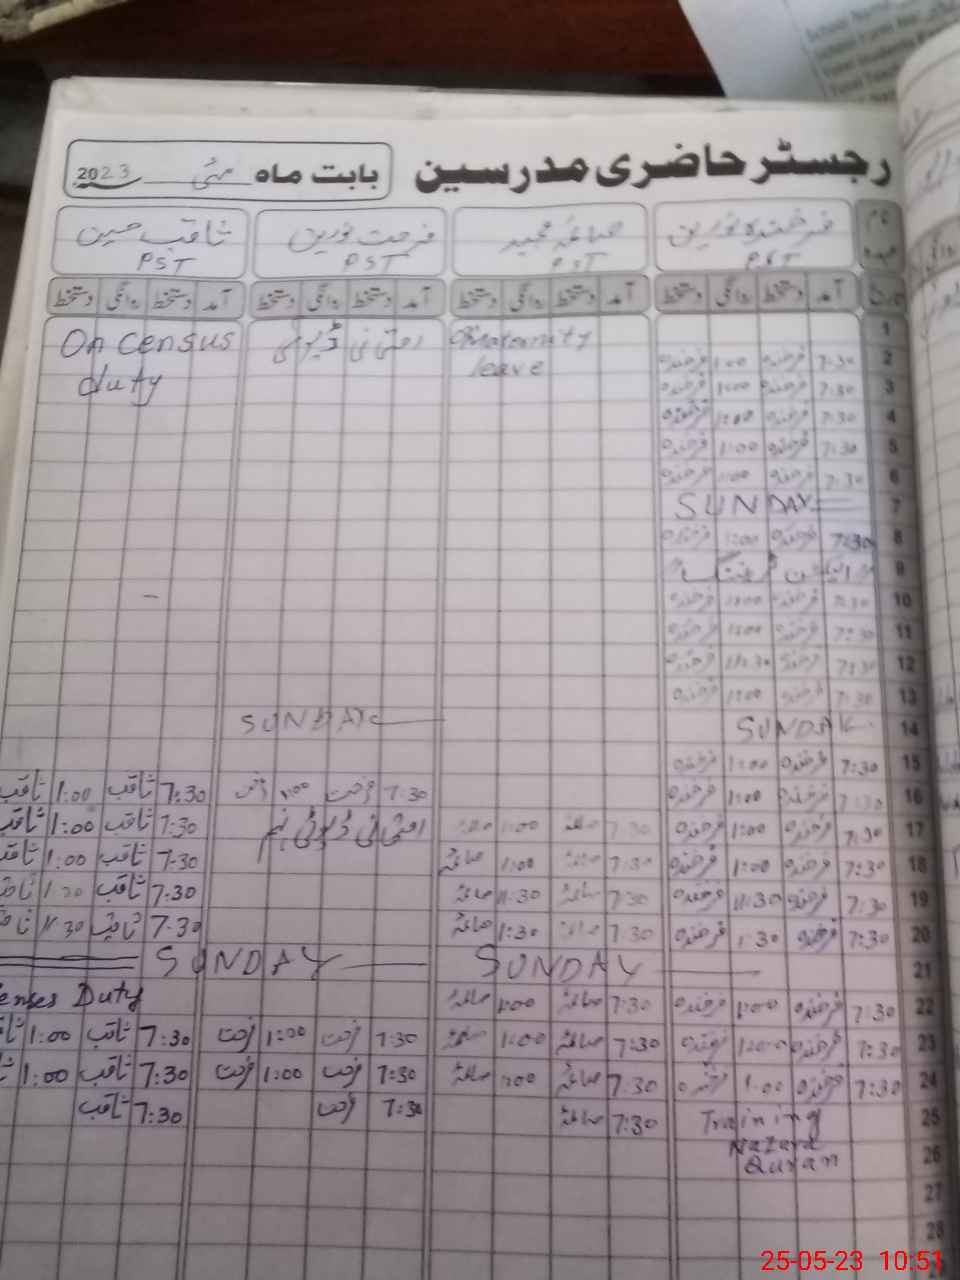 رجسٹر حاضری مدرسین
بابت ماہ مئی 2023
نام فرخندہ نورین صاعقہ مجید فرحت نورین ثاقب حسین
عہدہ PST PST PST PST
تاریخ آمد دستخط روانگی دستخط آمد دستخط روانگی دستخط آمد دستخط روانگی دستخط آمد دستخط روانگی دستخط
1 Maternity امتحانی ڈیوٹی On Census
2 7:30 فرخندہ 1:00 فرخندہ leave duty
3 7:30 فرخندہ 1:00 فرخندہ
4 7:30 فرخندہ 1:00 فرخندہ
5 7:30 فرخندہ 1:00 فرخندہ
6 7:30 فرخندہ 1:00 فرخندہ
7 SUNDAY
8 7:30 فرخندہ 1:00 فرخندہ
9 الیکشن ٹریننگ
10 7:30 فرخندہ 1:00 فرخندہ
11 7:30 فرخندہ 1:00 فرخندہ
12 7:30 فرخندہ 11:30 فرخندہ
13 7:30 فرخندہ 1:00 فرخندہ
14 SUNDAY SUNDAY
15 7:30 فرخندہ 1:00 فرخندہ
16 7:30 فرخندہ 1:00 فرخندہ 7:30 فرحت 1:00 فرحت 7:30 ثاقب 1:00 ثاقب
17 7:30 فرخندہ 1:00 فرخندہ 7:30 صاعقہ 1:00 صاعقہ امتحانی ڈیوٹی نہم 7:30 ثاقب 1:00 ثاقب
18 7:30 فرخندہ 1:00 فرخندہ 7:30 صاعقہ 1:00 صاعقہ 7:30 ثاقب 1:00 ثاقب
19 7:30 فرخندہ 11:30 فرخندہ 7:30 صاعقہ 11:30 صاعقہ 7:30 ثاقب
20 7:30 فرخندہ 1:30 فرخندہ 7:30 صاعقہ 1:30 صاعقہ 7:30 ثاقب 11:30
21 SUNDAY SUNDAY
22 7:30 فرخندہ 1:00 فرخندہ 7:30 صاعقہ 1:00 صاعقہ Duty
23 7:30 فرخندہ 1:00 فرخندہ 7:30 صاعقہ 1:00 صاعقہ 7:30 فرحت 1:00 فرحت 7:30 ثاقب 1:00
24 7:30 فرخندہ 1:00 فرخندہ 7:30 صاعقہ 1:00 صاعقہ 7:30 فرحت 1:00 فرحت 7:30 ثاقب 1:00
25 Training 7:30 صاعقہ 7:30 فرحت 7:30 ثاقب
26 Nazara
Quran
27
28
25-05-23 10:51